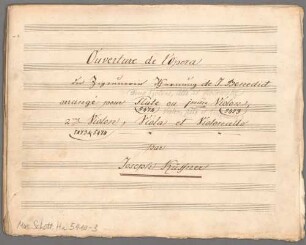 Ouverture de l'Opera
Der Zigeunerin Warnung de J. Benedict
arrangé pour Flute ou premier Violon,
2me Violon, Viola et Violoncelle
par
Joseph Küffner
Mus. Schott. Ha 5400-3